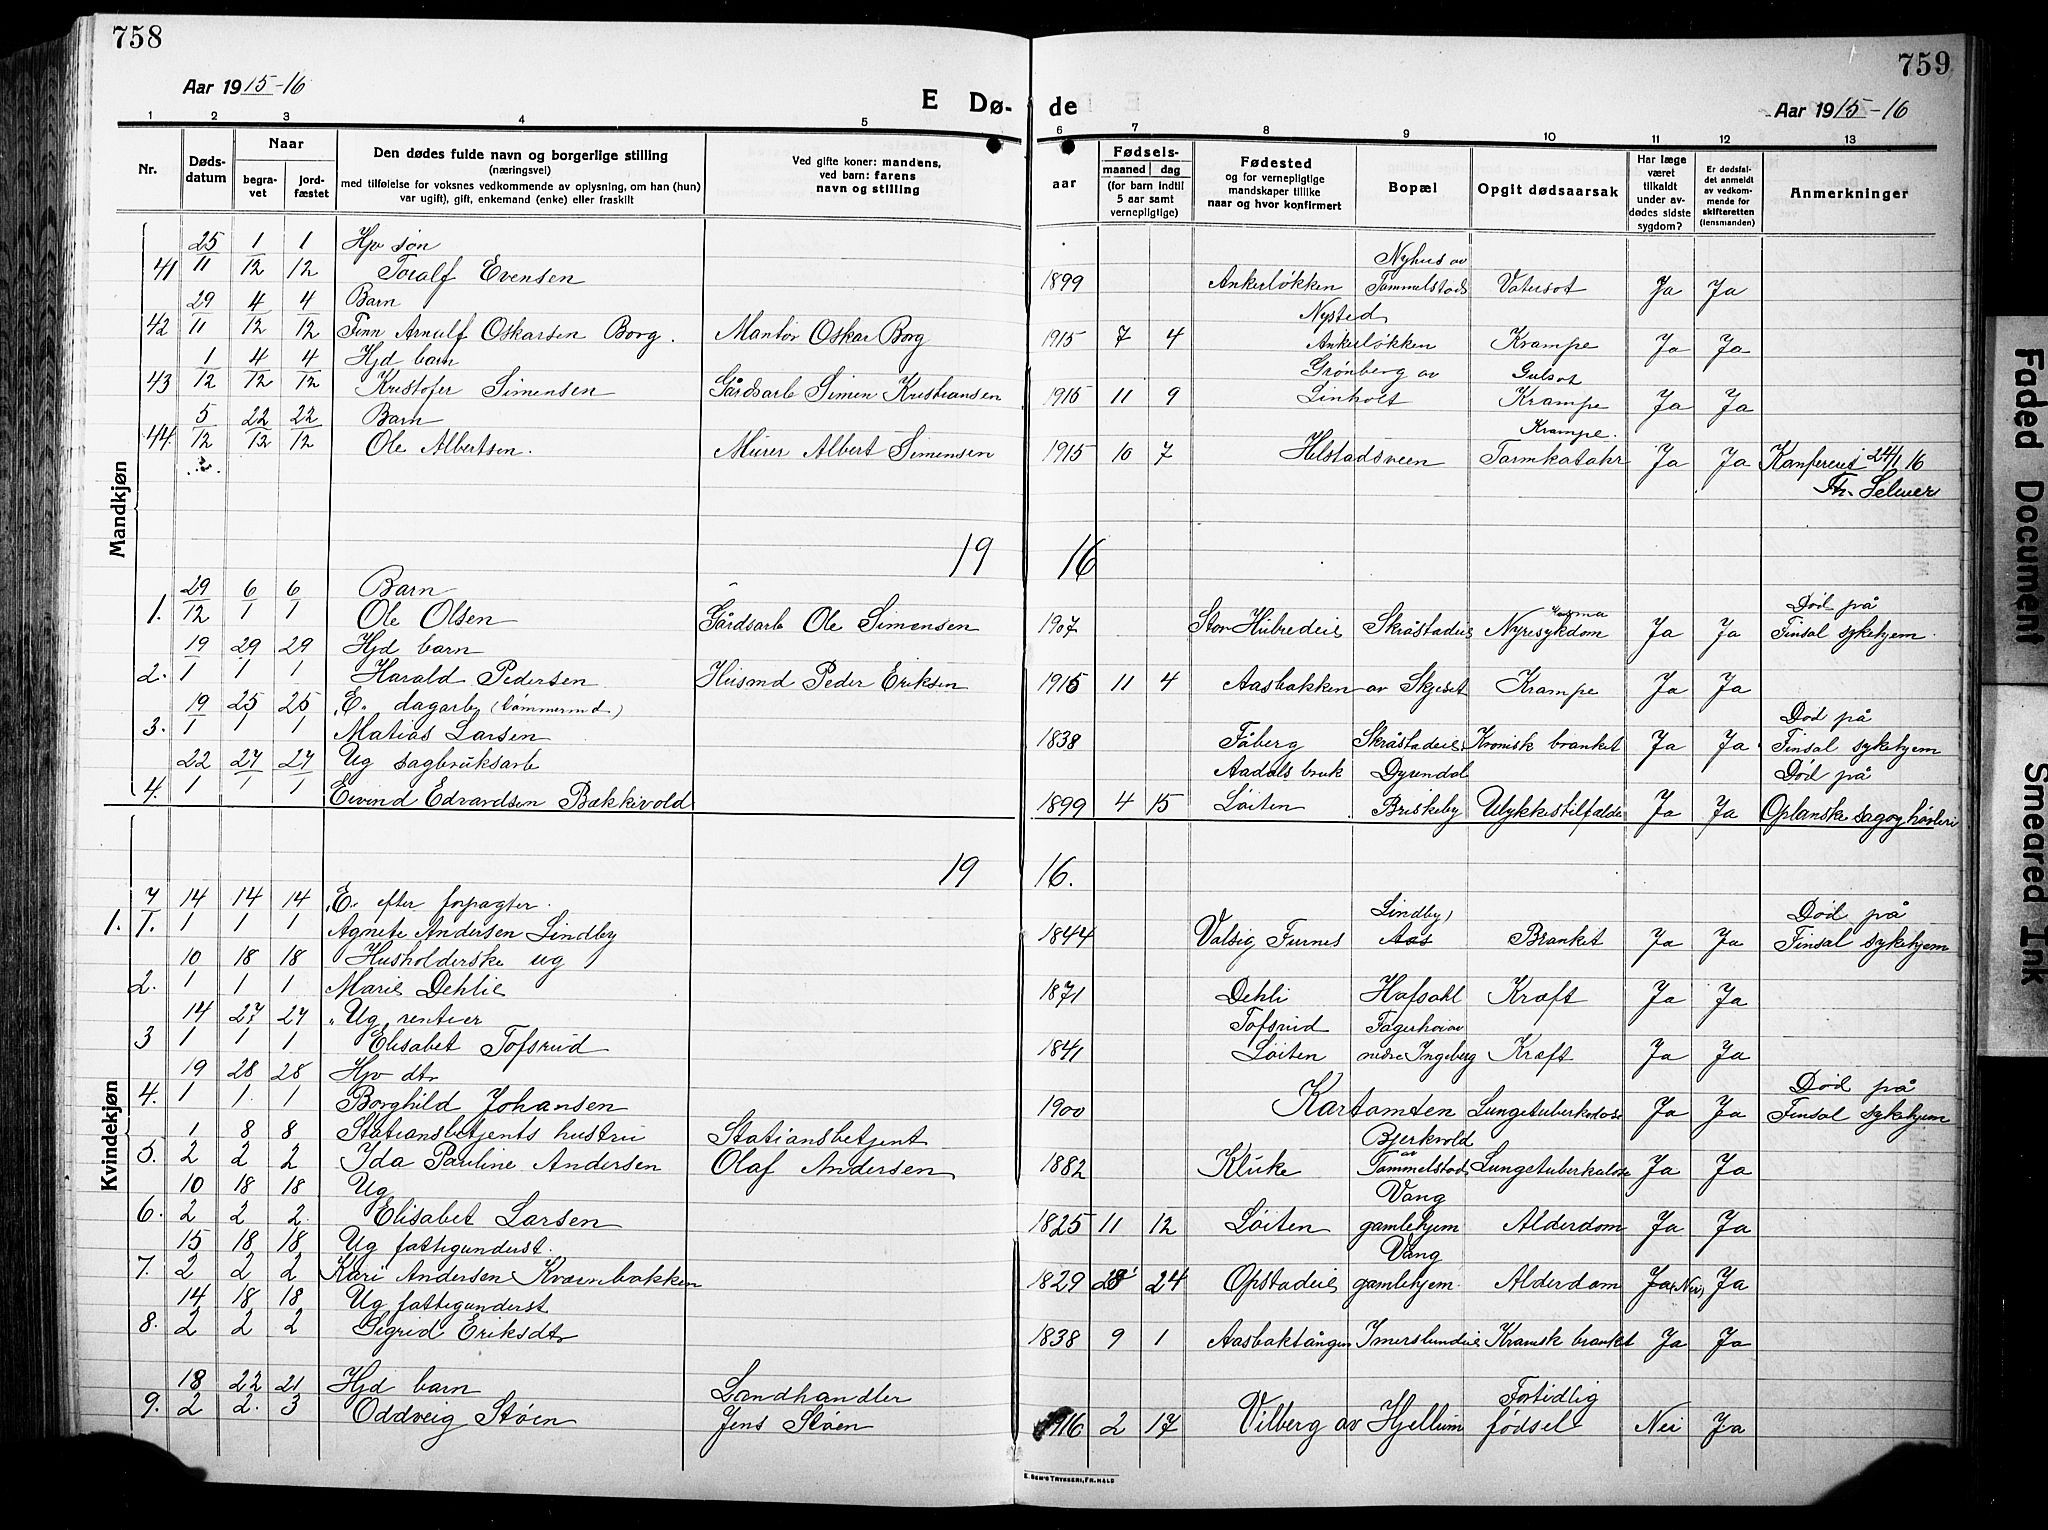 758
759
Aar 1915-16
E Dø-
de
Aar 1915-16
1 2 3 4 5 6 7 8 9 10 11 12 13
Nr.
Dødsdatum
Naar
begravet
jordfæstet
Den dødes fulde navn og borgerlige stilling
(næringsvei)
med tilføielse for voksnes vedkommende av oplysning, om han (hun)
var ugift), gift, enkemand (enke) eller fraskilt
Ved gifte koner: mandens,
ved barn: farens
navn og stilling
aar
Fødsels-
maaned dag
(for barn indtil
5 aar samt
vernepligtige)
Fødested
og for vernepligtige
mandskaper tillike
naar og hvor konfirmert
Bopæl
Opgit dødsaarsak
Har læge
været
tilkaldt
under av-
dødes sidste
sygdom?
Er dødsfal-
det anmeldt
av vedkom-
mende for
skifteretten
(lensmanden)
Anmerkninger
Mandkjøn
25 1 1 Hjv søn Nyhus av
41 11 12 12 Toralf Evensen 1899 Ankerløkken Tommelstad Vatersot Ja Ja
29 4 4 Barn Nysted
42 11 12 12 Finn Arnulf Oskarsen Borg. Mantør Oskar Borg 1915 7 4 Ankerløkken Krampe Ja Ja
1 4 4 Hjd barn Grønberg av Gulsot
43 12 12 12 Kristofer Simensen Gårdsarb Simen Kristiansen 1915 11 9 Linholt Krampe Ja Ja
5 22 22 Barn Krampe.
44. 12 12 12 Ole Albertsen. Murer Albert Simensen 1915 10 7 Helstadsveen Tarmkatahr Ja Ja Konfereret 24/1 16
Th. Selmer
19 16
29 6 6 Barn Død på
1. 12 1 1 Ole Olsen Gårdsarb Ole Simensen 1907 Stor Hubredeie Skråstadeie Nyresykdom Ja Ja Finsal sykehjem.
19 29 29 Hjd barn
2. 1 1 1 Harald Pedersen Husmd Peder Eriksen 1915 11 4 Aasbakken av Skjeset Krampe Ja Ja
19 25 25 "E" dagarb (tømmermd.) Død på
3. 1 1 1 Matias Larsen 1838 Fåberg Skråstadeie Kronisk bronket Ja Ja Finsal sykehjem
22 27 27 Ug sagbruksarb Aadals bruk Dyrendal Død på
4. 1 1 1 Eivind Edvardsen Bækkivold 1899 4 15 Løiten Briskeby Ulykkestilfælde Ja Ja Oplanske sag og høvleri
Kvindekjøn
19 16.
7 14 14 14 "E" efter forpagter. Lindby) Død på
1. 1. 1 1 1 Agnete Andersen Lindby 1844 Valsig Furnes Aas Bronket Ja Ja Finsal sykehjem
10 18 18 Husholderske ug
2. 1 1 1 Marie Dehlie 1871 Dehli Hafsahl Kræft Ja Ja
14 27 27 "Ug" rentier Tofsrud Fagerhoi av
3 1 1 1 Elisabet Tofsrud 1841 Løiten nedre Ingeberg Kræft Ja Ja
19 28 28 Hjv dtr Død på
4. 1 1 1 Borghild Johansen 1900 Kartomten Lungetuberkolose Ja Ja Finsal sykehjem
1 8 8 Stationsbetjents hustru Stationsbetjent Bjerkvold av
5. 2 2 2 Ida Pauline Andersen Olaf Andersen 1882 Kluke Tommelstad Lungetuberkulose Ja Ja
10 18 18 Ug Vang
6. 2 2 2. Elisabet Larsen 1825 11 12 Løiten gamlehjem Alderdom Ja Ja
15 18 18 Ug fattigunderst. Vang
7. 2 2 2 Kari Andersen Kværnbakken 1829 24 Opstadeie gamlehjem. Alderdom Ja (Nei) Ja
14 18 18 Ug fattigunderst
8. 2 2 2 Sigrid Eriksdtr 1838 9 1 Aasbaktangen Imerslundeie Kronisk bronket Ja Ja
18 22 21 Hjd barn Landhandler Fortidlig
9. 2 2. 3 Oddveig Støen Jens Støen 1916 2 17 Vilberg av Hjellum fødsel Nei Ja
E. SEM'S TRYKKERI, FR.HALD
Faded Document
Smeared Ink